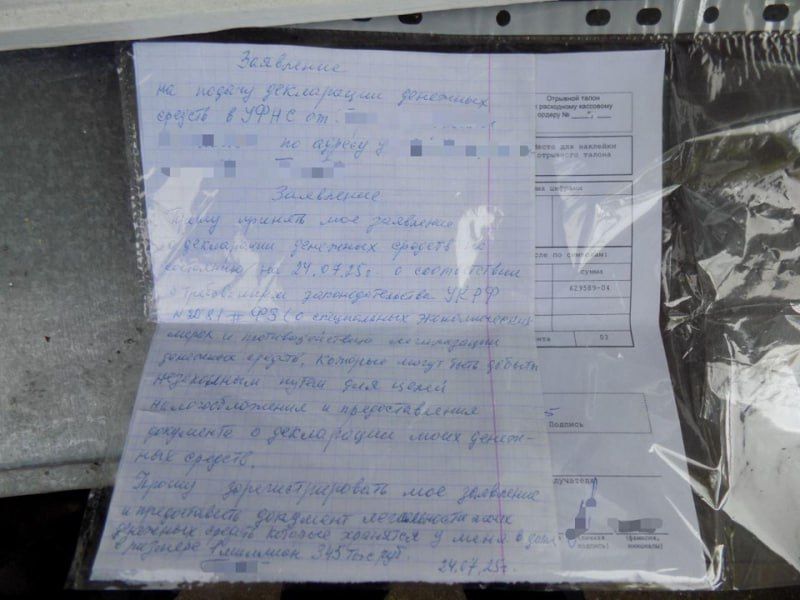 Заявление
на подачу декларации денежных
средств в УФНС от
по адресу у
Заявление
Прошу принять мое заявление
о декларации денежных средств по
состоянию на 24.07.25г. о соответствии
с законодательства УКРФ
ФЗ (о специальных экономических
мерах и противодействию легализации
денежных средств, которые могут быть добыты
незаконным путем для целей
налогообложения и предоставления
документа о декларации моих денеж-
ных средств.
Прошу зарегистрировать мое заявление
и предоставить документ легальности моих
денежных средств которые хранятся у меня в доме
в размере 1 миллион 345 тыс руб.
24.07.25г.
Отрывной талон
к расходному кассовому
ордеру №
Место для наклейки
отрывного талона
цифрами
числе по символам:
сумма
629589-04
03
Подпись
(личная подпись)
(фамилия, инициалы)